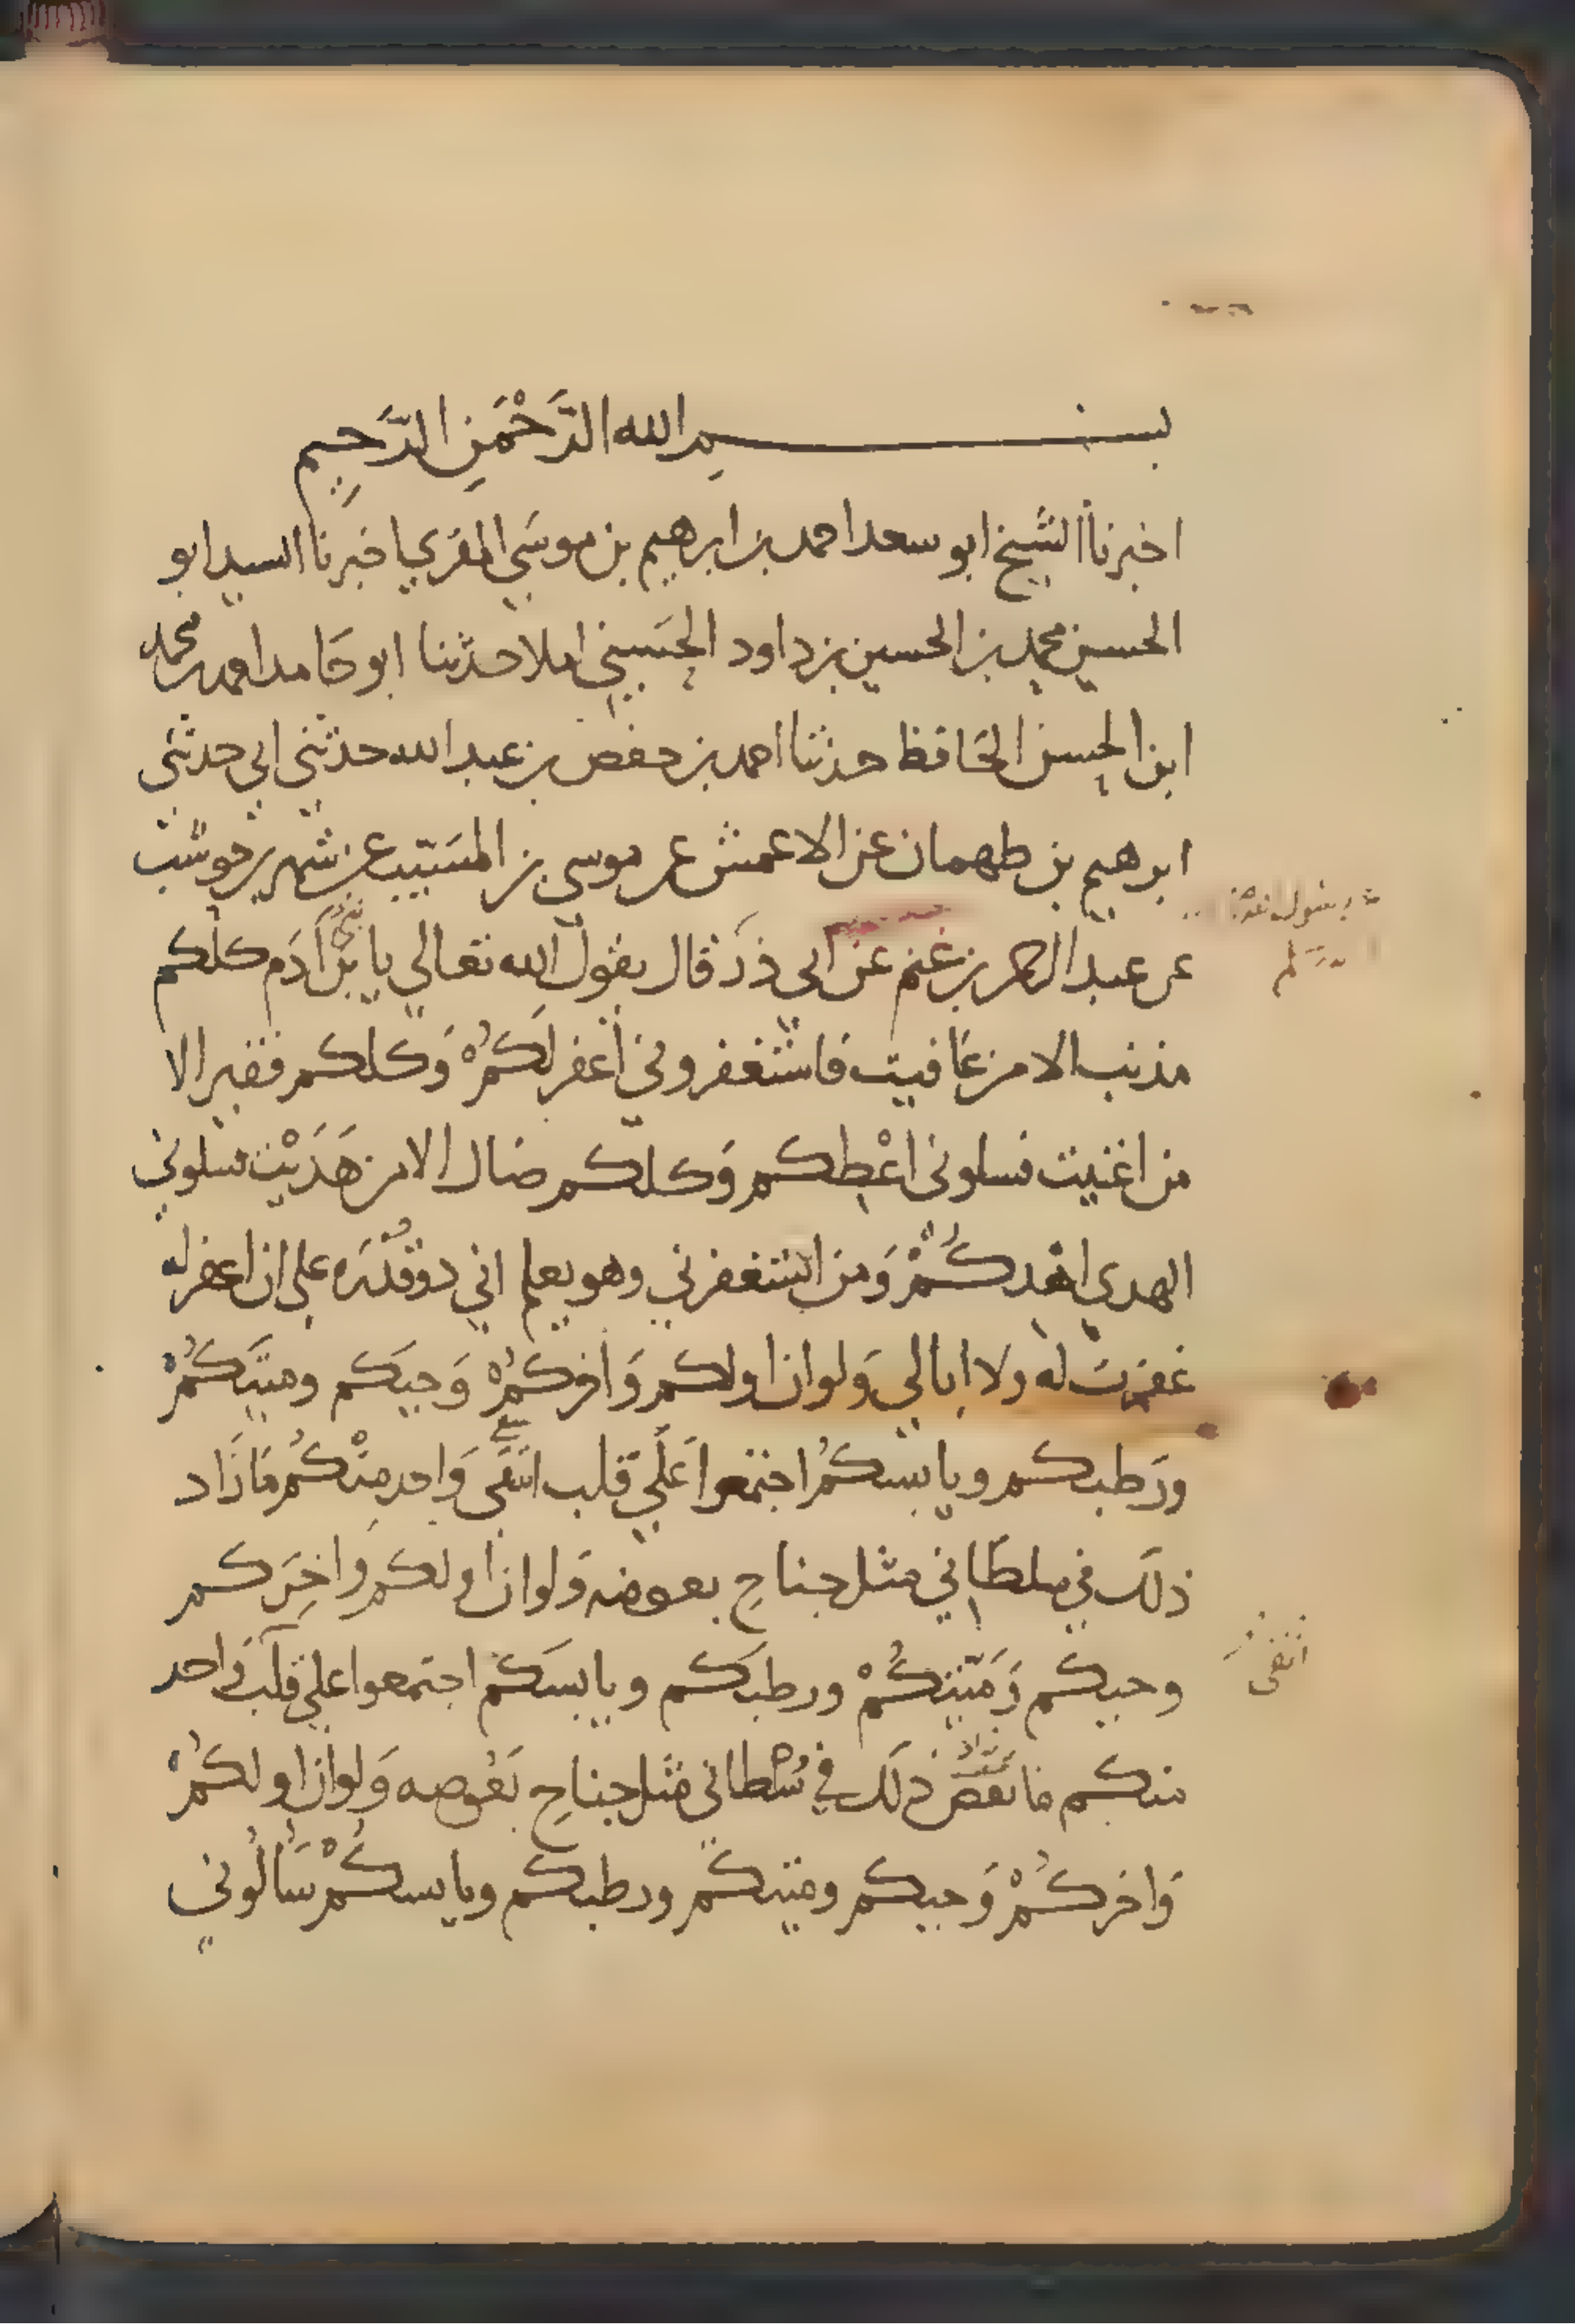 بسم الله الرَّحْمَنِ الرَّحِيمِ
اخبرنا الشيخ ابو سعد احمد بن ابرهيم بن موسى المقري اخبرنا السيد ابو
الحسين محمد بن الحسين بن داود الحَسَني املا حدثنا ابو حامد احمد بن محمد
ابن الحسن الحافظ حدثنا احمد بن حفص بن عبد الله حدثني ابي حدثني
ابرهيم بن طهمان عن الاعمش عن موسى بن المسَيّب عن شهر بن حوشب
عن عبد الرحمن بن غنم عن ابي ذر قال يقول الله تعالي يا بني آدم كلكم
مذنب الا من عافيت فاستغفروني أغفر لَكُمْ وَكلكم فقير الا
من اغنيت فسلوني اعْطِكم وَكلكم ضال الا من هَدَيْت فسلوني
الهدي اهْدِكُمْ وَمن استغفرني وهو يعلم اني ذو قُدْرَه علي ان اغفر له
غفرت له ولا ابالي وَلو ان اولكم وَاخركُمْ وَحيكم وميتكُمْ
ورَطبكم ويابسكُم اجتمعوا عَلَي قلب اتقَى وَاحد منْكُم مَا زَاد
ذلَك في سلطَاني مثل جناحِ بعوضه وَلو ان اولكم وَاخِرَكم
وحيكم وَمَيّتكُمْ ورطبَكم ويابسَكم اجتمعوا علي قلب واحد
منكم ما نقص ذلَك في سُلطاني مثل جناحِ بَعُوضه وَلو ان اولكُمْ
وَاخركُمْ وَحيكم وميتكُم ورطبكم ويابسكُمْ سَأَلُوني
اتقى